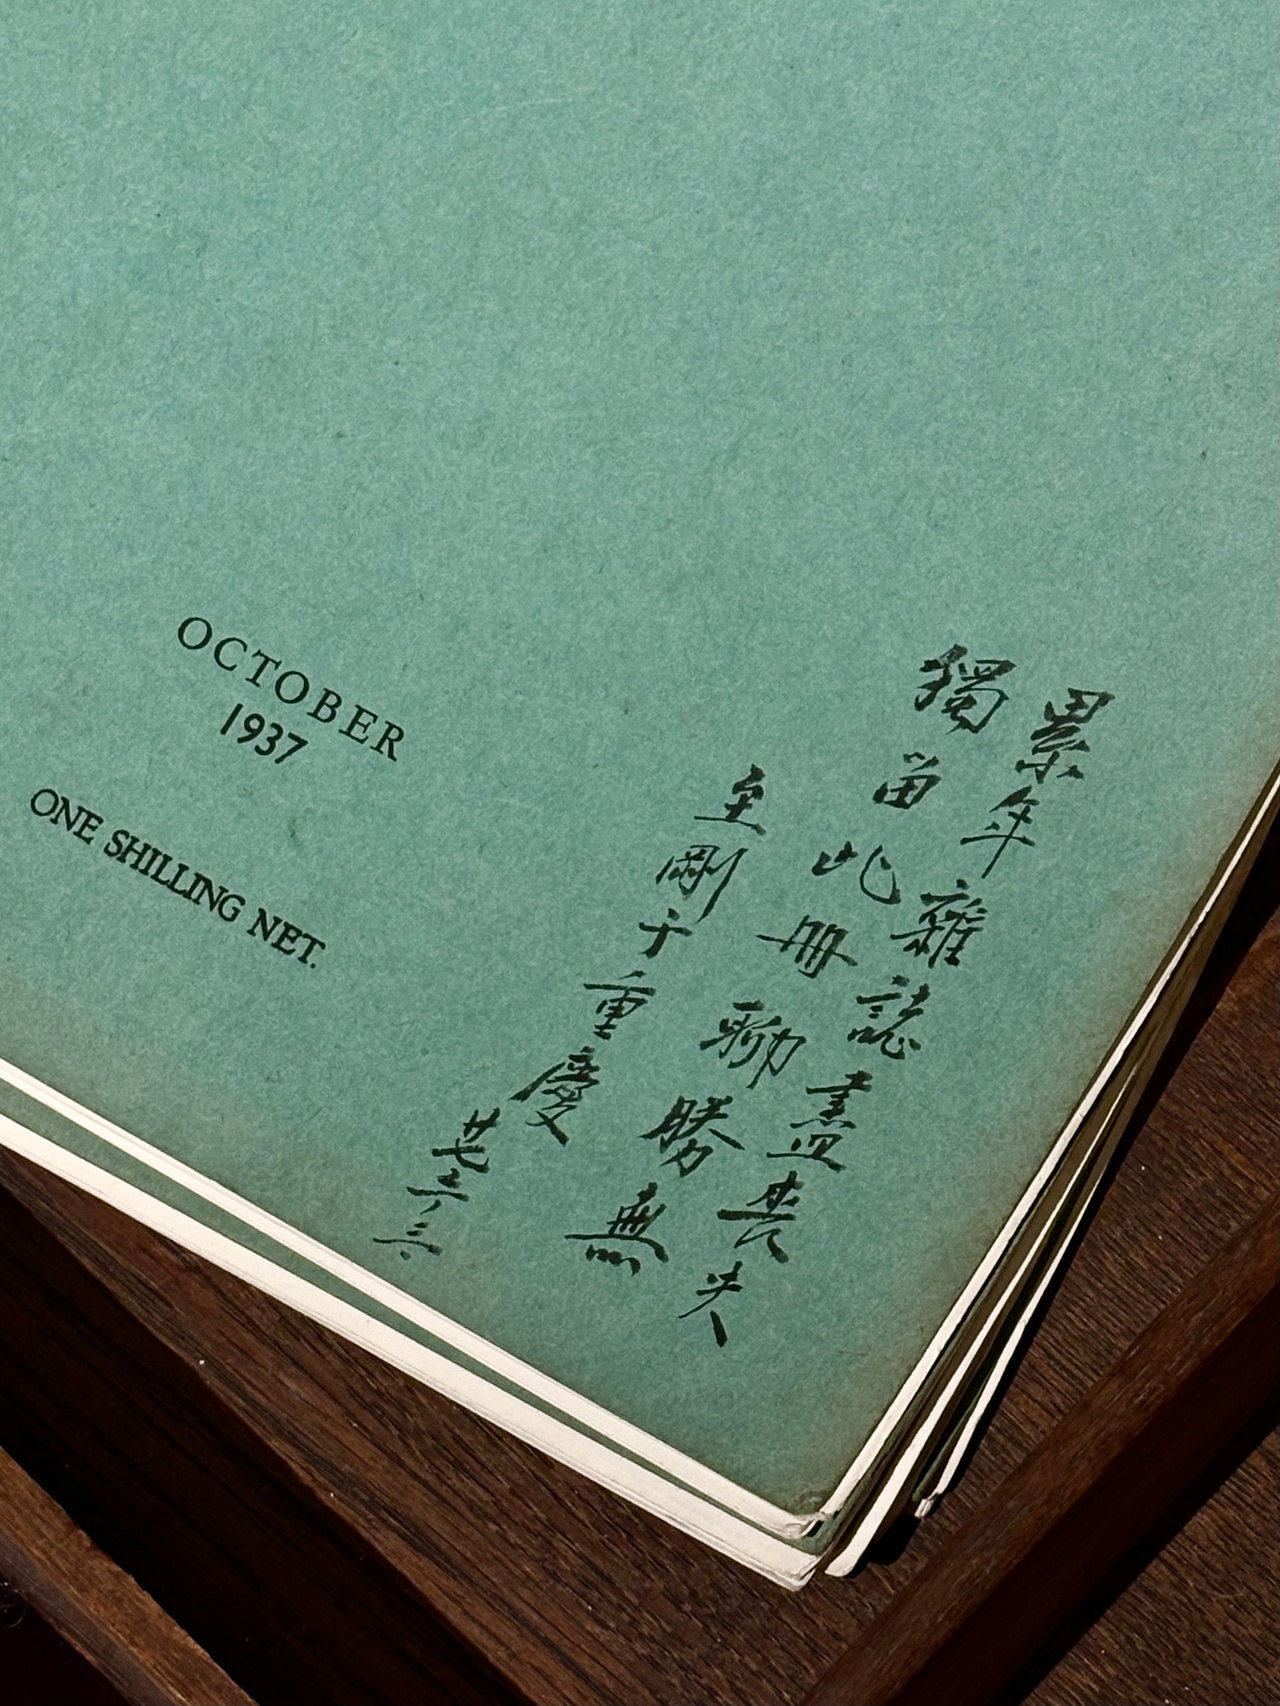 OCTOBER
1937
ONE SHILLING NET.
累年雜誌盡丧失
獨畄此冊聊勝無
至剛于重慶
廿七、六、三、